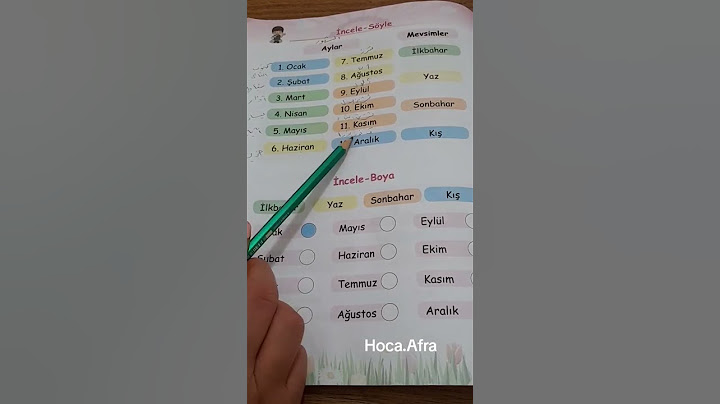 İncele-Söyle
Aylar
Mevsimler
1. Ocak
2. Şubat
3. Mart
4. Nisan
5. Mayıs
6. Haziran
7. Temmuz
8. Ağustos
9. Eylül
10. Ekim
11. Kasım
Aralık
İlkbahar
Yaz
Sonbahar
Kış
İncele-Boya
Yaz
Sonbahar
Kış
Mayıs
Eylül
Şubat
Haziran
Ekim
Temmuz
Kasım
Ağustos
Aralık
Hoca.Afra